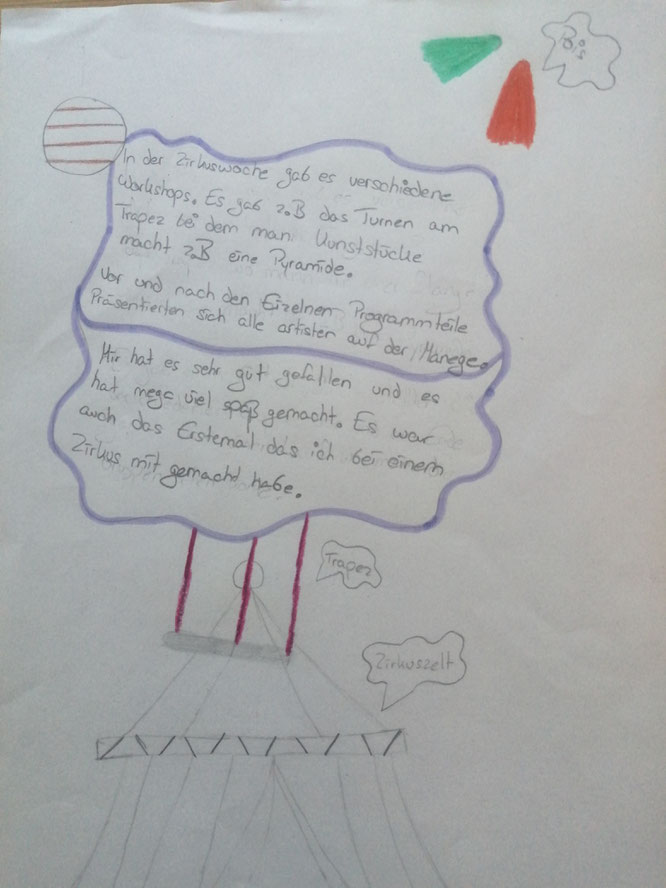 Bis
In der Zirkuswoche gab es verschiedene
Workshops. Es gab z.B das Turnen am
Trapez bei dem man Kunststücke
macht z.B eine Pyramide.
Vor und nach den Einzelnen Programmteile
Präsentierten sich alle artisten auf der Manege.
Mir hat es sehr gut gefallen und es
hat mega viel spaß gemacht. Es war
auch das Erstemal das ich bei einem
Zirkus mit gemacht habe.
Trapez
Zirkuszelt